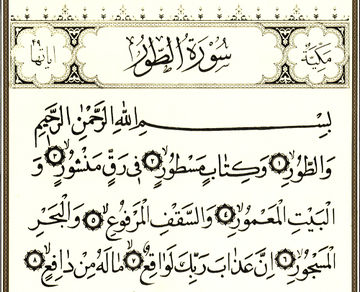 مكية سورة الطور آياتها ٤٩
بِسْمِ اللهِ الرَّحْمٰنِ الرَّحِيمِ
وَالطُّورِ ١ وَكِتَابٍ مَسْطُورٍ ٢ فِى رَقٍّ مَنْشُورٍ ٣ وَ
الْبَيْتِ الْمَعْمُورِ ٤ وَالسَّقْفِ الْمَرْفُوعِ ٥ وَالْبَحْرِ
الْمَسْجُورِ ٦ اِنَّ عَذَابَ رَبِّكَ لَوَاقِعٌ ٧ مَا لَهُ مِنْ دَافِعٍ ٨